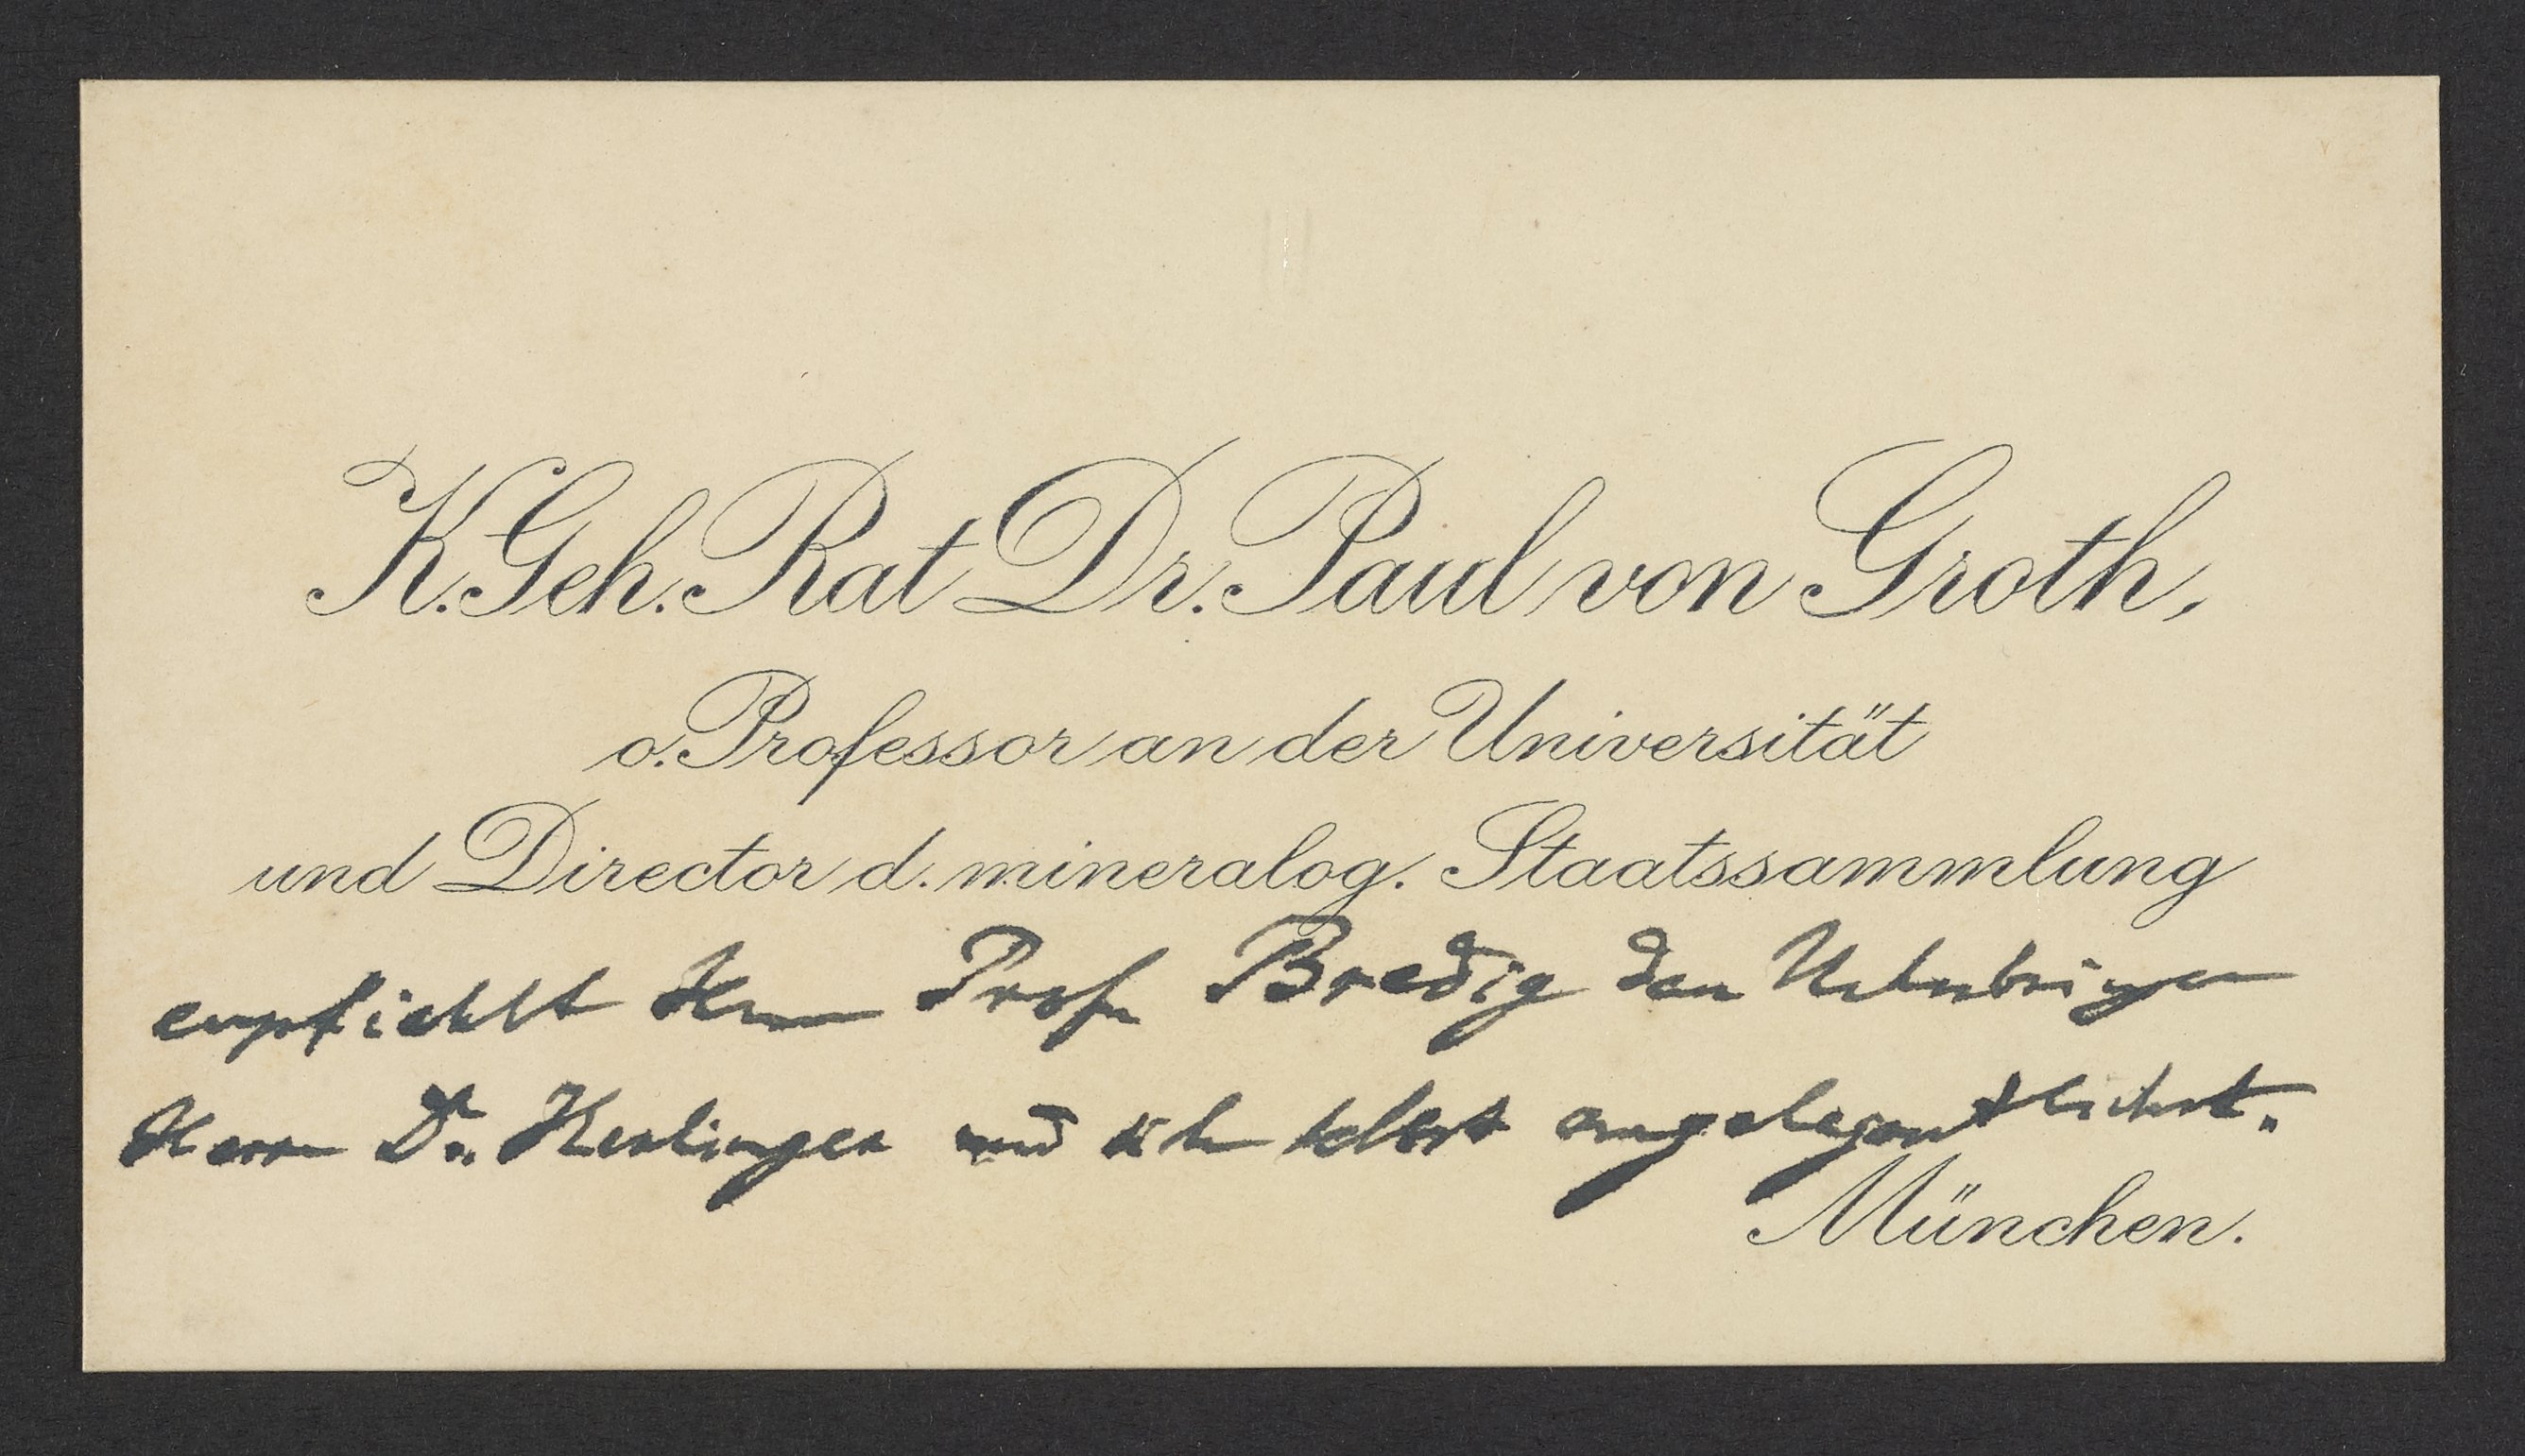 K. Geh. Rat Dr. Paul von Groth,
o. Professor an der Universität
und Director d. mineralog. Staatssammlung
empfiehlt Herrn Prof. Bredig den Ueberbringer
Herrn Dr. und sich selbst angelegentlichst.
München.